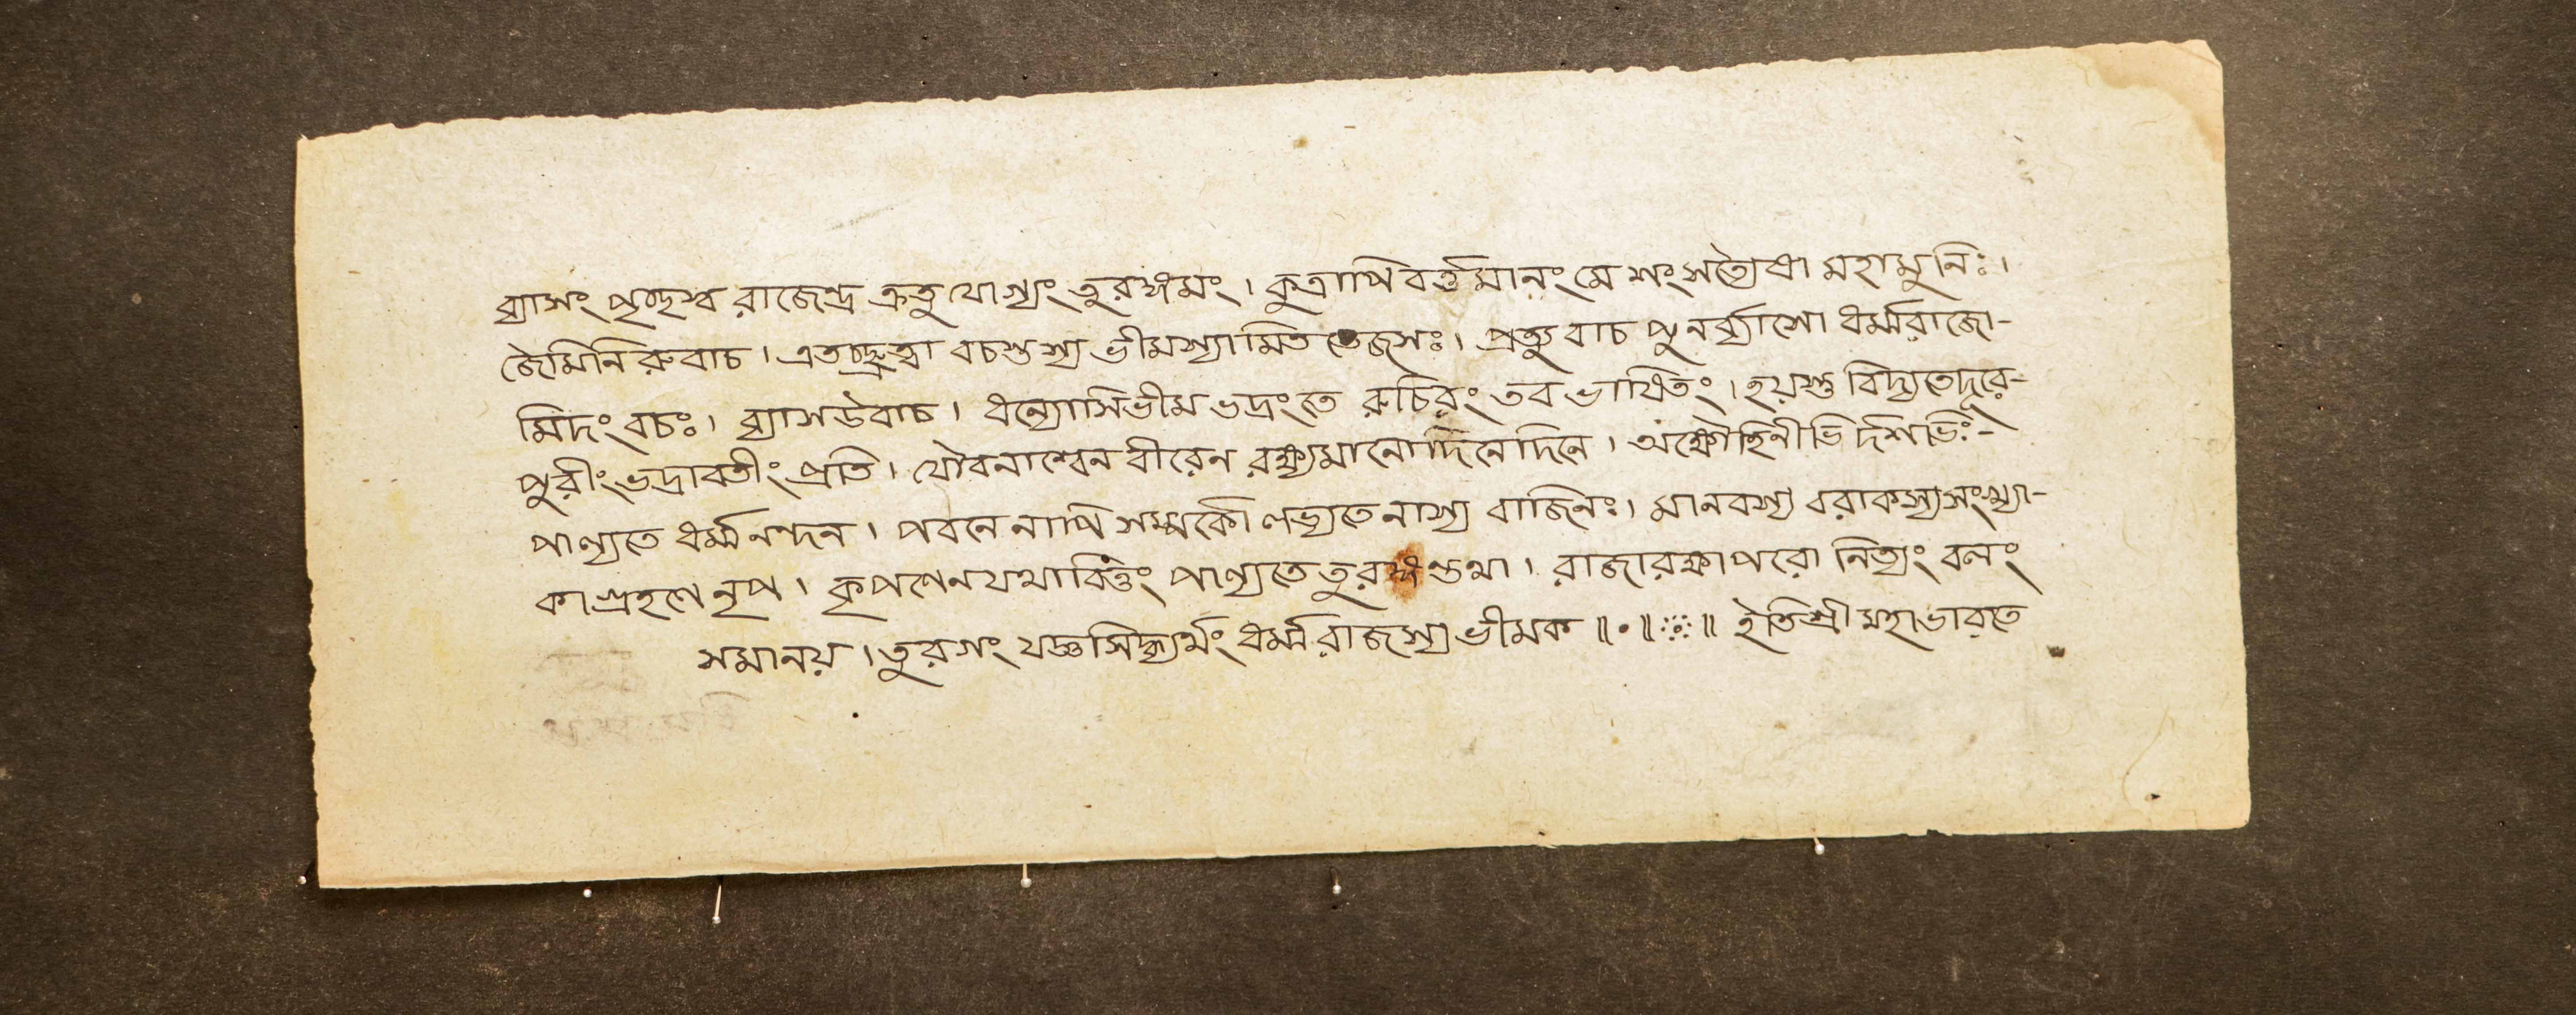 ব্যাসং পৃচ্ছস্ব রাজেন্দ্র ক্রতু যোগ্যং তুরঙ্গমং। কুত্রাপি বর্ত্তমানং মে শংসত্যৈষা মহামুনিঃ।
জৈমিনি রুবাচ। এতচ্ছ্রুত্বা বচস্তস্য ভীমস্যামিত তেজসঃ। প্রত্যু বাচ পুনর্ব্যাশো ধর্ম্মরাজো-
মিদং বচঃ। ব্যাস উবাচ। ধন্যোসি ভীম ভদ্রংতে রুচিরং তব ভাষিতং। হয়স্তু বিদ্যতেদূরে-
পুরীং ভদ্রাবতীং প্রতি। যৌবনাশ্বেন বীরেন রক্ষ্যমানো দিনে দিনে। অক্ষৌহিনীভি র্দশভিঃ-
পাল্যতে ধর্ম্ম নন্দন। পবনে নাপি সম্পর্কো লভ্যতে নাস্য বাজিনঃ। মানবস্য বরাকস্য সংখ্যা-
কা গ্রহণে নৃপ। কৃপণেন যথা বিত্তং পাল্যতে তুরঙ্গ স্তথা। রাজা রক্ষা পরো নিত্যং বলং
সমানয়। তুরগং যজ্ঞ সিদ্ধ্যর্থং ধর্ম্ম রাজস্য ভীমক॥•॥ঃ॥ ইতি শ্রী মহাভারতে